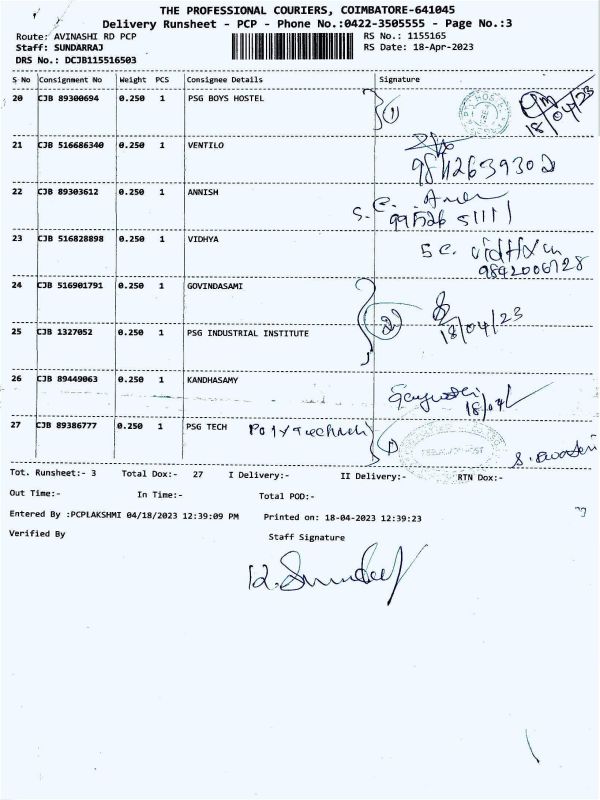 THE PROFESSIONAL COURIERS, COIMBATORE-641045
Delivery Runsheet - PCP - Phone No.:0422-3505555 - Page No.:3
Route: AVINASHI RD PCP RS No.: 1155165
Staff: SUNDARRAJ RS Date: 18-Apr-2023
DRS No.: DCJB115516503
S No Consignment No Weight PCS Consignee Details Signature
20 CJB 89300694 0.250 1 PSG BOYS HOSTEL 1
18/04/23
21 CJB 516686340 0.250 1 VENTILO
9842639302
22 CJB 89303612 0.250 1 ANNISH
S.C.
99526 51111
23 CJB 516828898 0.250 1 VIDHYA
S C. vidhya
9842006728
24 CJB 516901791 0.250 1 GOVINDASAMI
2 18/04/23
25 CJB 1327052 0.250 1 PSG INDUSTRIAL INSTITUTE
26 CJB 89449063 0.250 1 KANDHASAMY
18/04/
27 CJB 89386777 0.250 1 PSG TECH Polytechnic 1
Tot. Runsheet:- 3 Total Dox:- 27 I Delivery:- II Delivery:- RTN Dox:-
Out Time:- In Time:- Total POD:-
Entered By :PCPLAKSHMI 04/18/2023 12:39:09 PM Printed on: 18-04-2023 12:39:23
Verified By Staff Signature